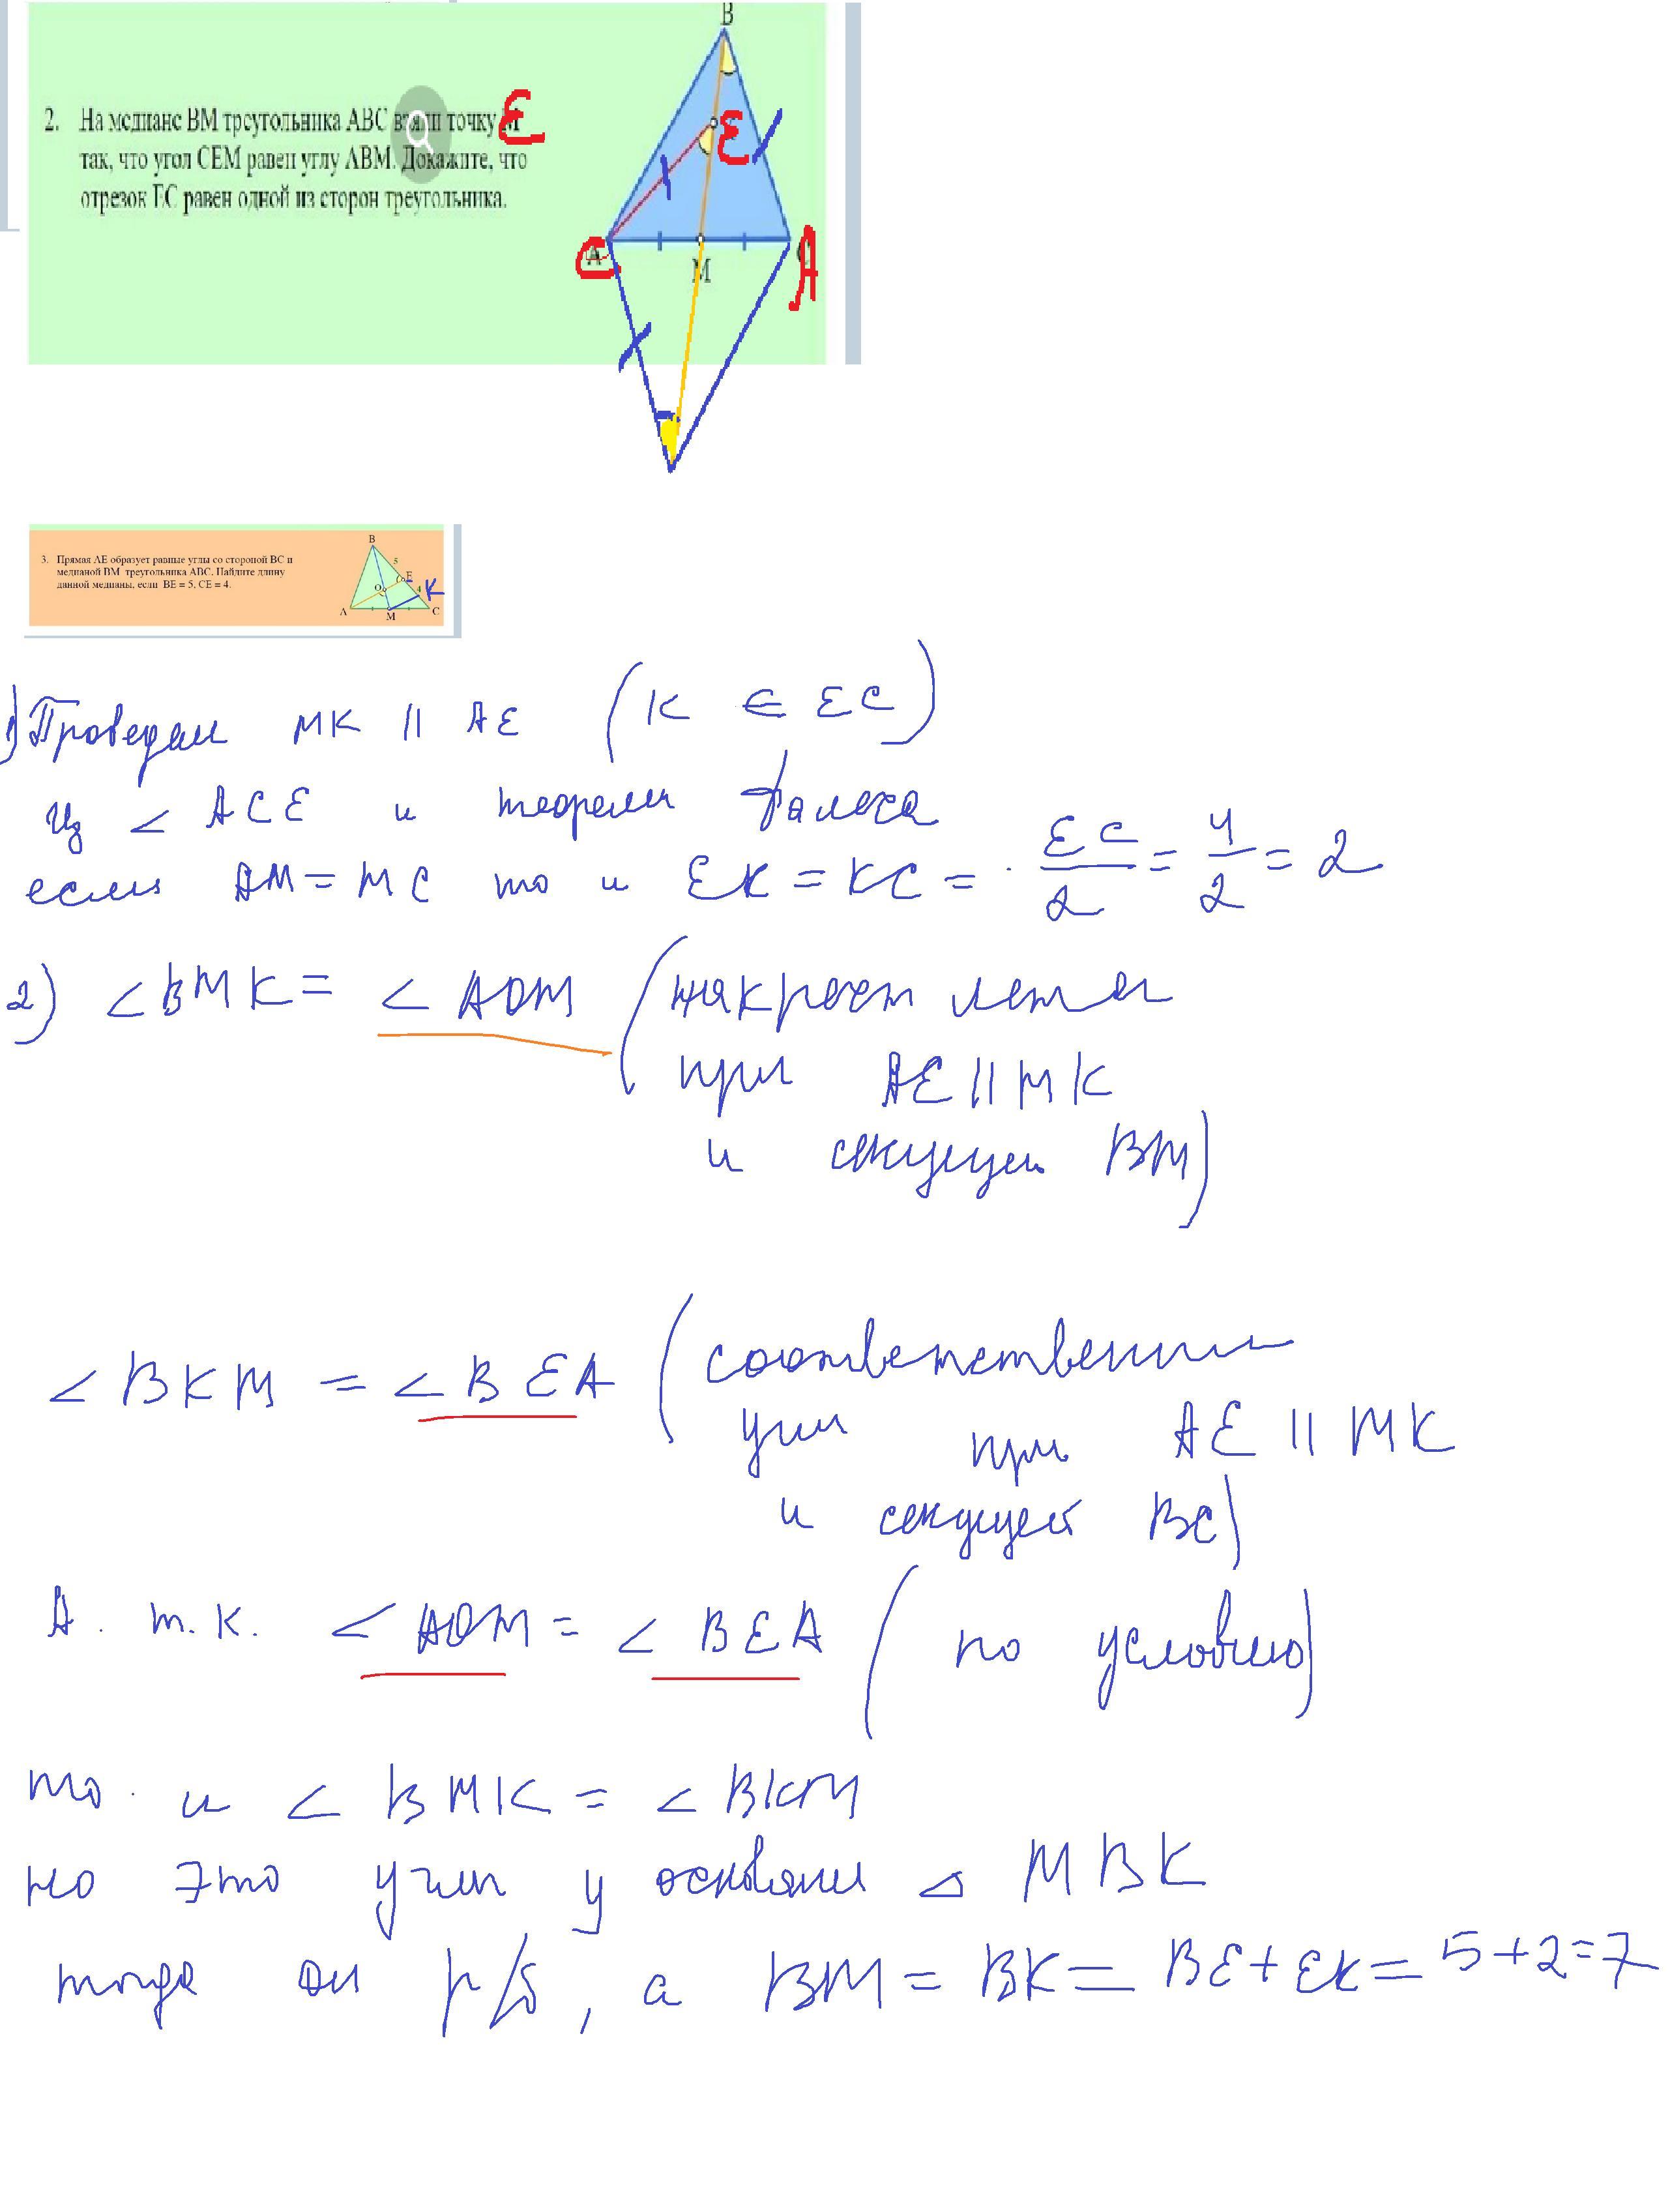 B
2. На медиане BM треугольника ABC взяли точку E
так, что угол CEM равен углу ABM. Докажите, что
отрезок EC равен одной из сторон треугольника.
E
C
A
M
3. Прямая AE образует равные углы со стороной BC и
медианой BM треугольника ABC. Найдите длину
данной медианы, если BE = 5, CE = 4.
B
5
E
O
4 K
A
M
C
1) Проведем MK || AE (K ∈ EC)
Из ∠ ACE и теоремы Фалеса
если AM = MC то и EK = KC = EC/2 = 4/2 = 2
2) ∠BMK = ∠ AOM (накрест
при AE || MK
и секущей BM)
∠ BKM = ∠ BEA (соответственные
углы при AE || MK
и секущей BC)
А т.к. ∠ AOM = ∠ BEA (по условию)
то и ∠ BMK = ∠ BKM
но это углы у основания △ MBK
тогда он р/б, а BM = BK = BE + EK = 5 + 2 = 7